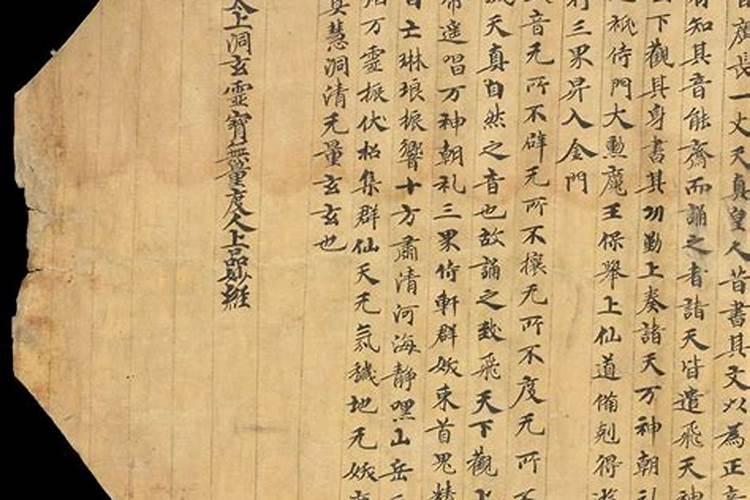 廣長一丈天真皇人昔書其文以為正音
有知其音能齋而誦之者諸天皆遣飛天神
下觀其身書其功勤上奏諸天万神朝礼
祇侍門大勳魔王保舉上仙道備剋得遊
行三界昇入金門
音无所不辟无所不攘无所不度无所不
天真自然之音也故誦之致飛天下觀上
帝遥唱万神朝礼三界侍軒群妖束首鬼精
自亡琳琅振響十方肅清河海靜嘿山岳
万靈振伏招集群仙天无氛穢地无妖
慧洞清无量玄玄也
上洞玄靈寶無量度人上品妙經